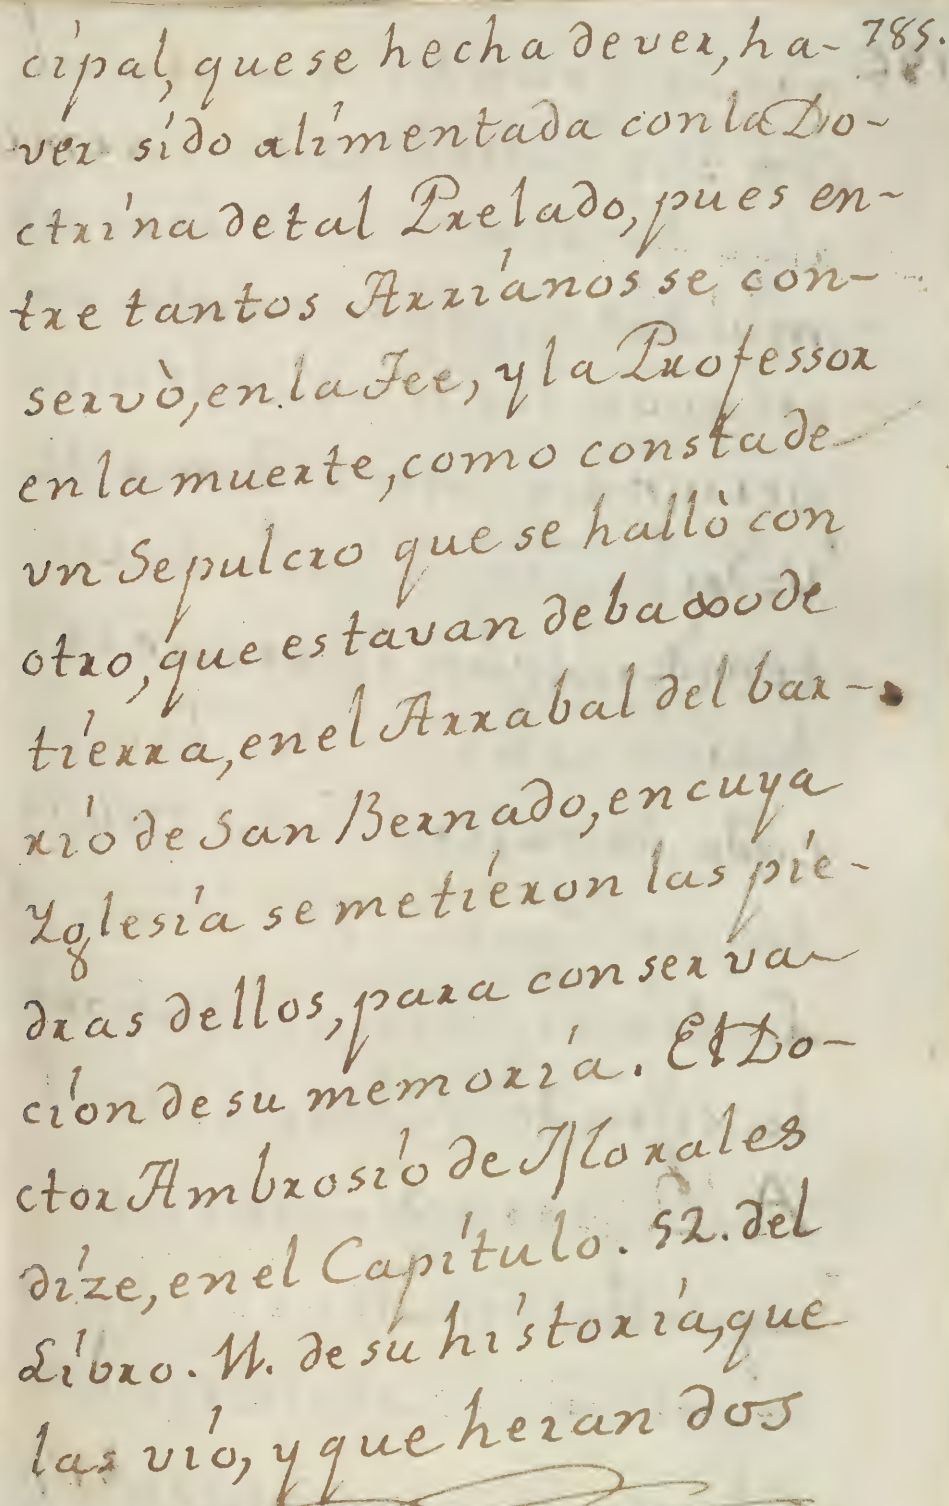 cipal, que se hecha de ver, ha- 785.
ver sido alimentada con la Do-
ctrina de tal Prelado, pues en-
tre tantos Arrianos se con-
servò, en la Fee, y la Professor
en la muerte, como consta de
vn Sepulcro que se hallò con
otro, que estavan debaxo de
tierra, en el Arrabal del bar-
rio de San Bernado, en cuya
Yglesia se metieron las pie-
dras dellos, para conserva-
cion de su memoria. El Do-
ctor Ambrosio de Morales
dize, en el Capitulo. 52. del
Libro. 11. de su historia, que
las vio, y que heran dos